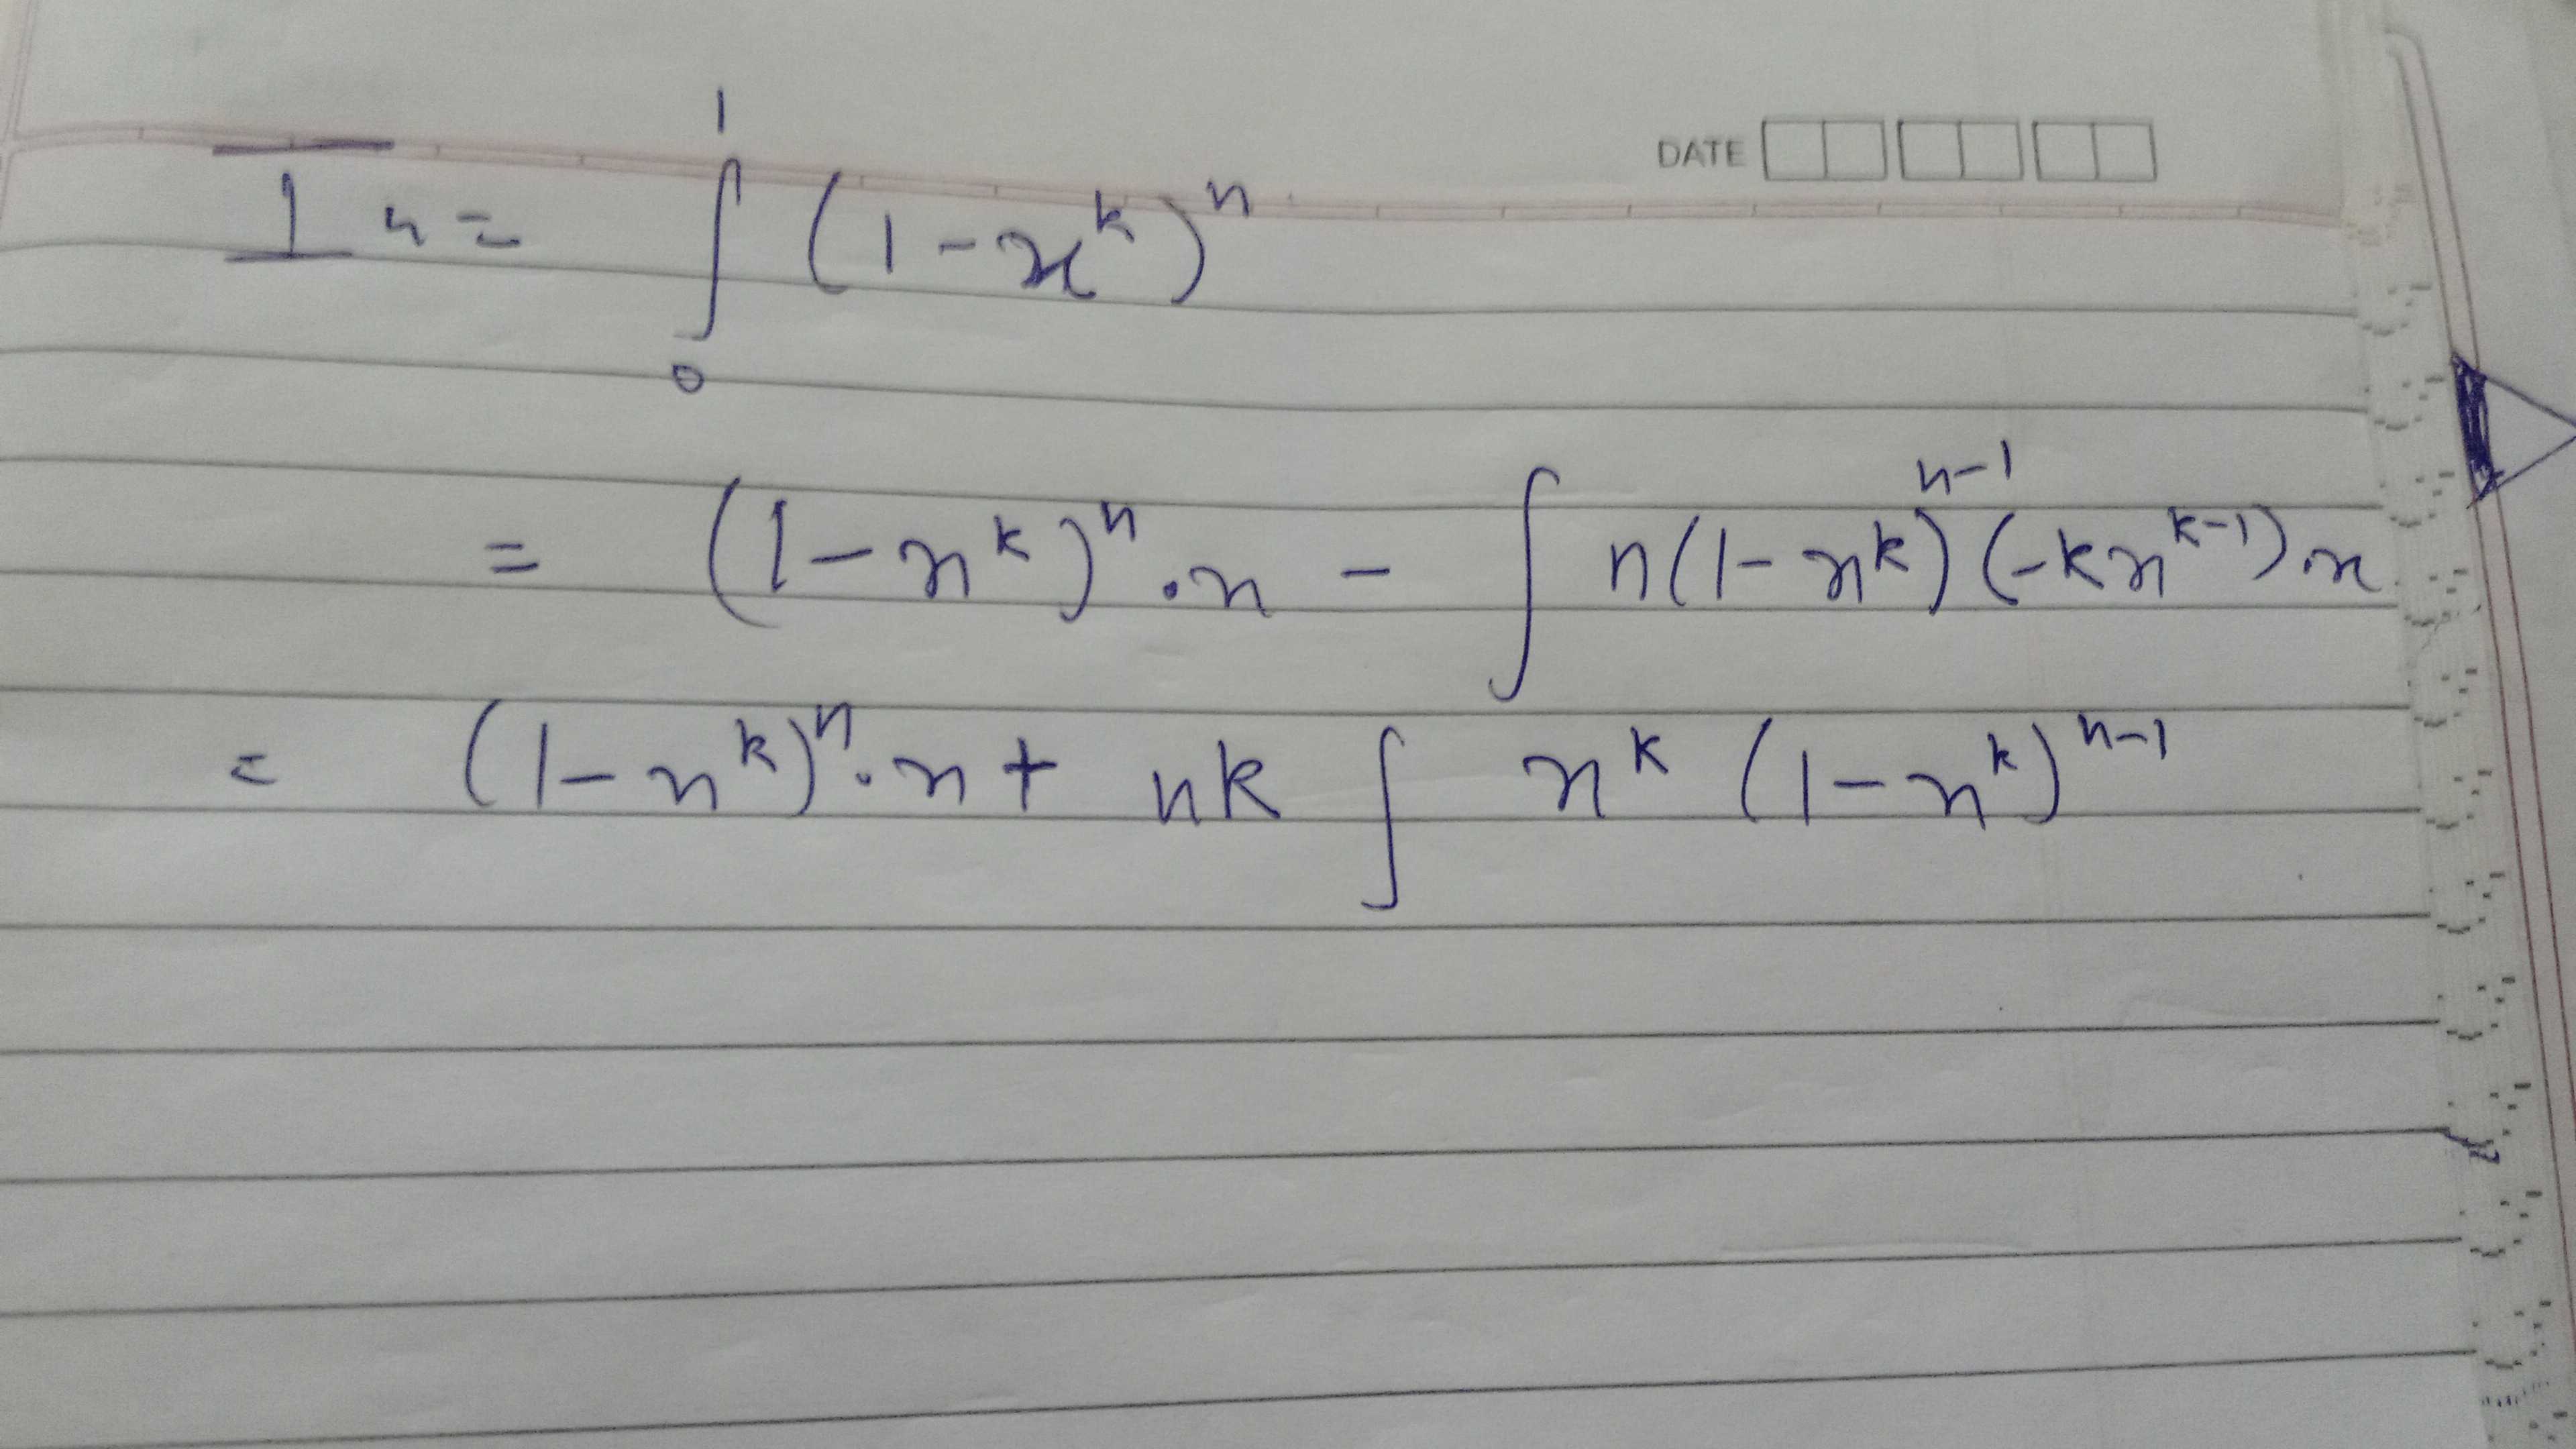 DATE
I n = ∫₀¹ (1 - x^k)^n
= (1 - x^k)^n . x - ∫ n(1 - x^k)^{n-1} (-k x^{k-1}) . x
= (1 - x^k)^n . x + nk ∫ x^k (1 - x^k)^{n-1}